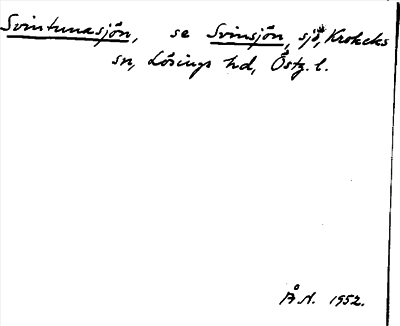 Svintunasjön, se Svinsjön, sjö, Krokeks
sn, Lösings hd, Östg. l.
Å.N. 1952.